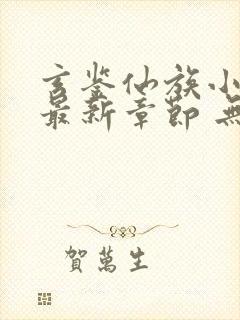 玄鉴仙族小
最新章節 無
賀萬生